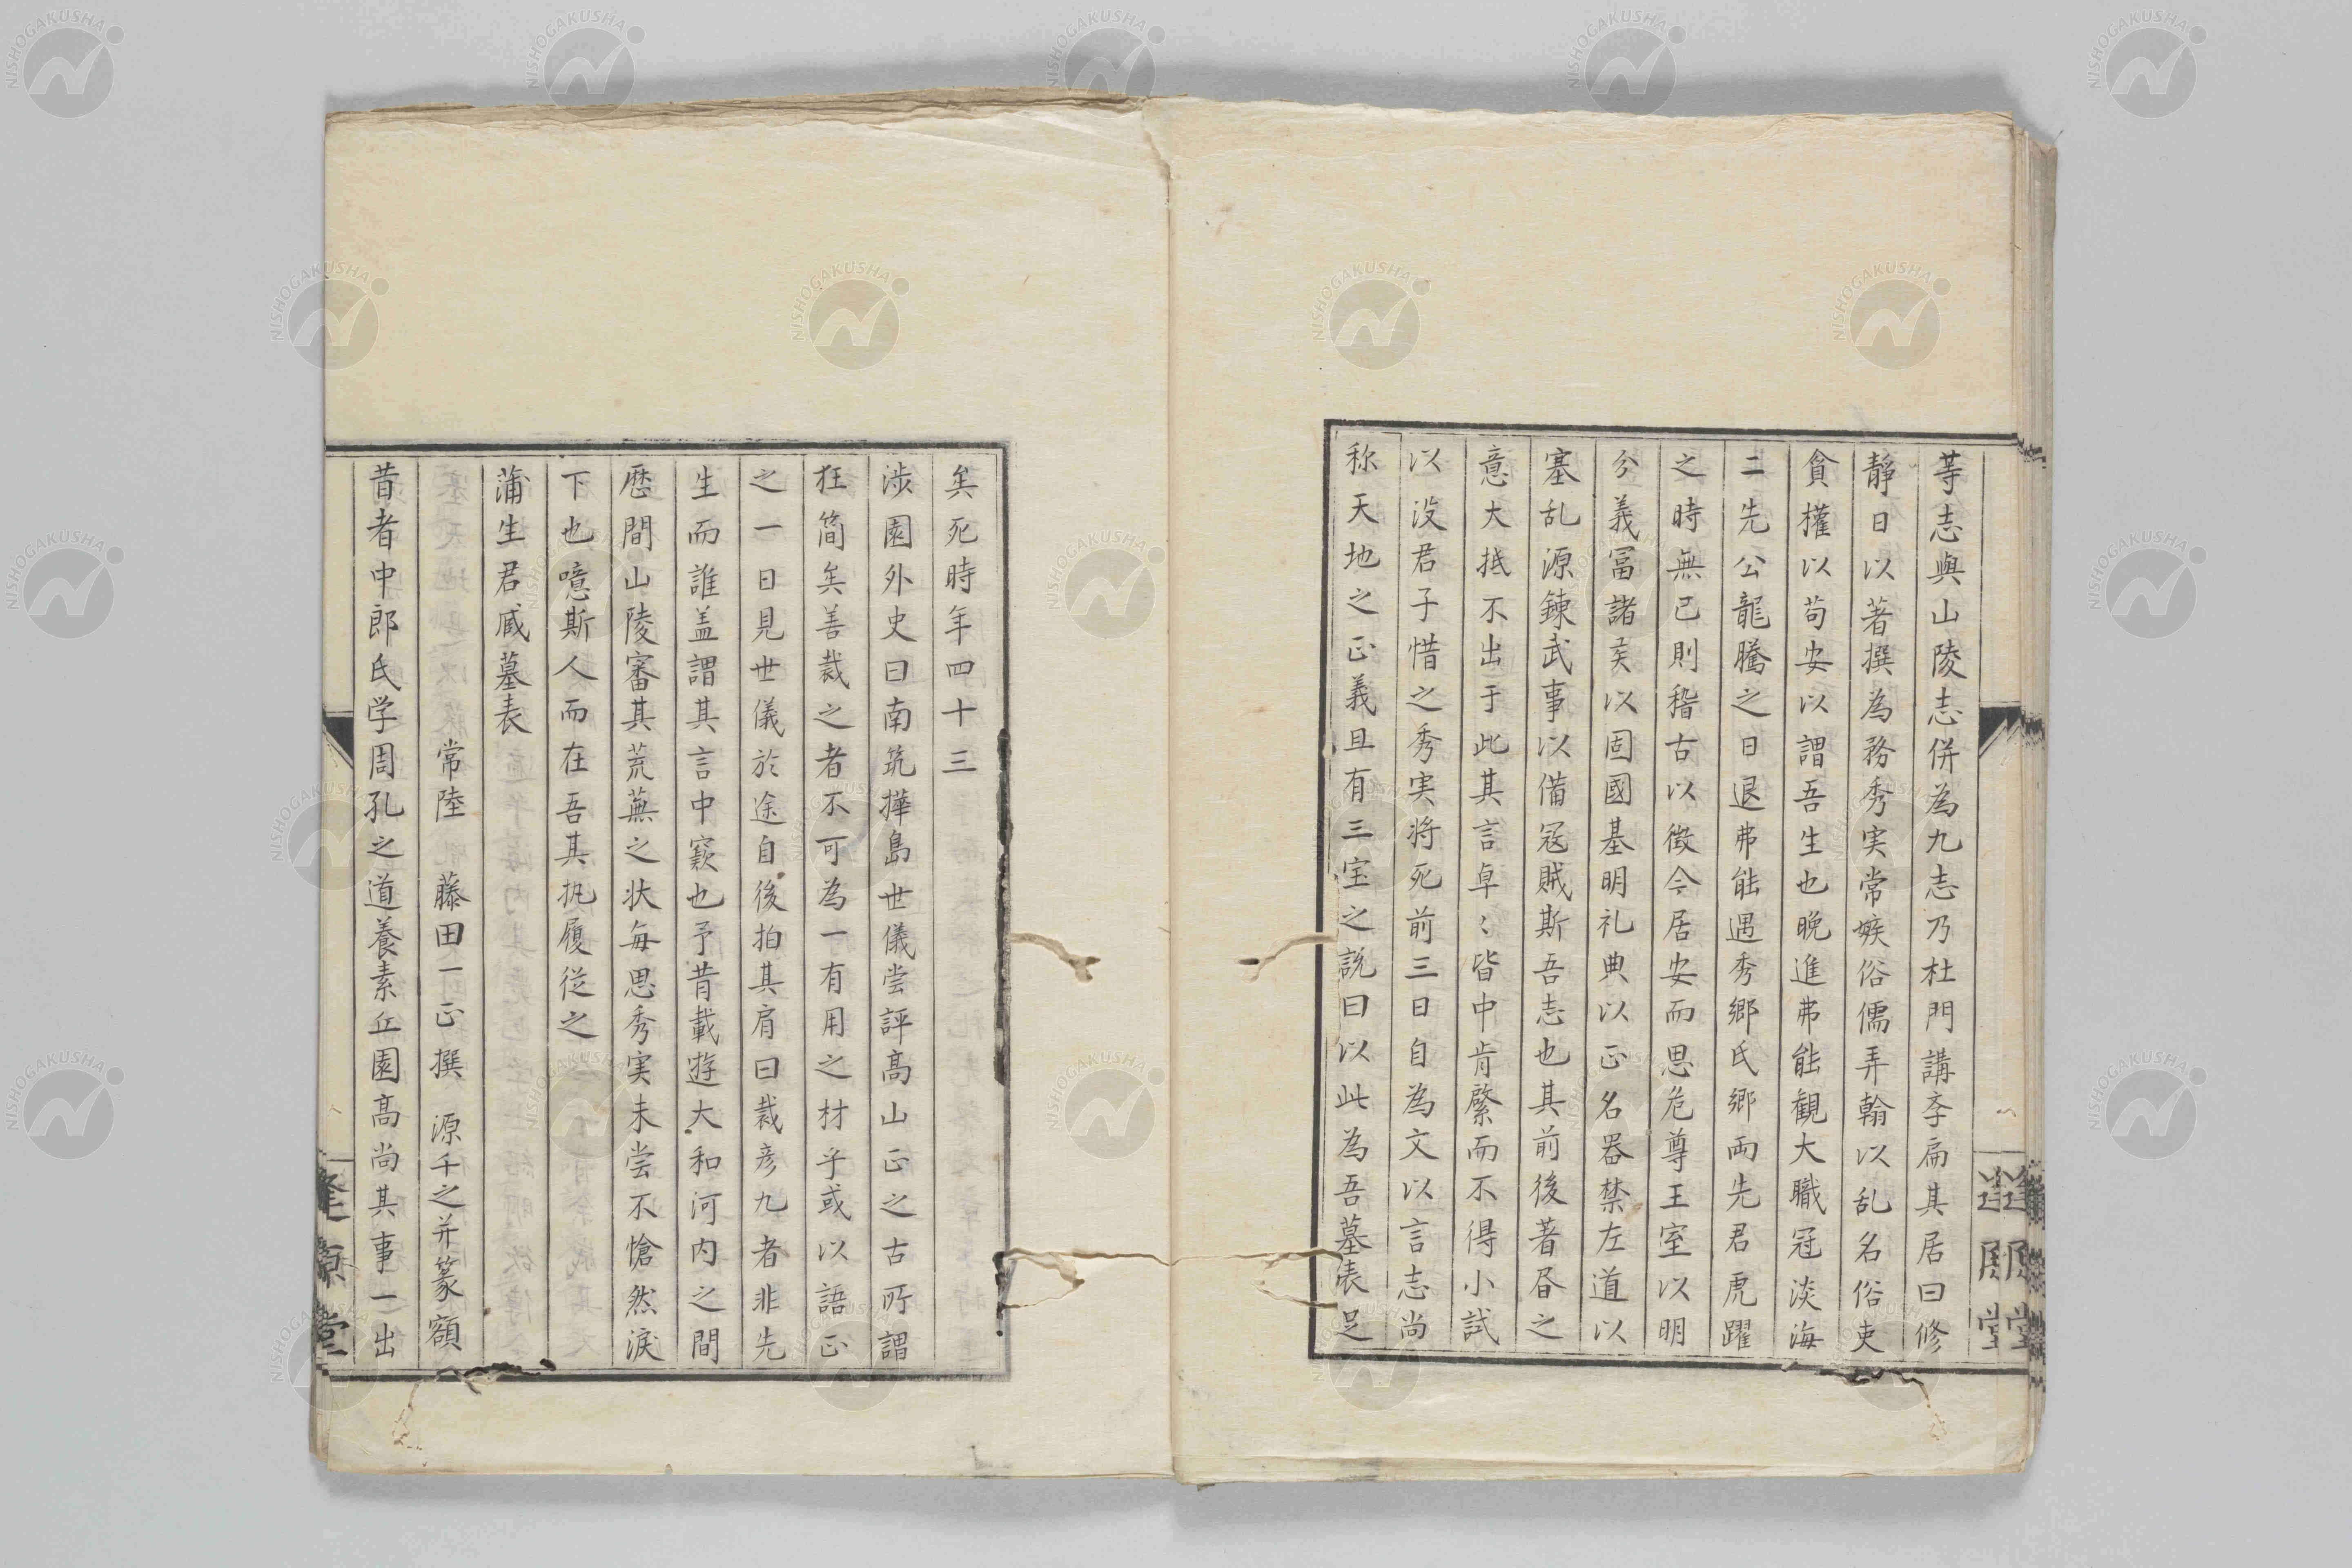 等志與山陵志併為九志乃杜門講斈扁其居曰修
靜日以著撰為務秀实常嫉俗儒弄翰以乱名俗吏
貪權以苟安以謂吾生也晩進弗能観大職冠淡海
二先公龍騰之日退弗能遇秀郷氏郷両先君虎躍
之時無已則稽古以徴今居安而思危尊王室以明
分義冨諸矦以固國基明礼典以正名器禁左道以
塞乱源錬武事以備冦賊斯吾志也其前後著昏之
意大抵不出于此其言卓〻皆中肯綮而不得小試
以没君子惜之秀実将死前三日自為文以言志尚
称天地之正義且有三宝之説曰以此為吾墓表足
矣死時年四十三
渉園外史曰南筑樺島世儀尝評高山正之古所謂
狂简矣善裁之者不可為一有用之材乎或以語正
之一日見世儀於途自後拍其肩曰裁彦九者非先
生而誰盖謂其言中窾也予昔載遊大和河内之間
歴間山陵審其荒蕪之状毎思秀実未尝不愴然涙
下也噫斯人而在吾其執履従之
蒲生君臧墓表
常陸 藤田一正撰 源千之并篆額
昔者中郎氏学周孔之道養素丘園高尚其事一出
NISHOGAKUSHA